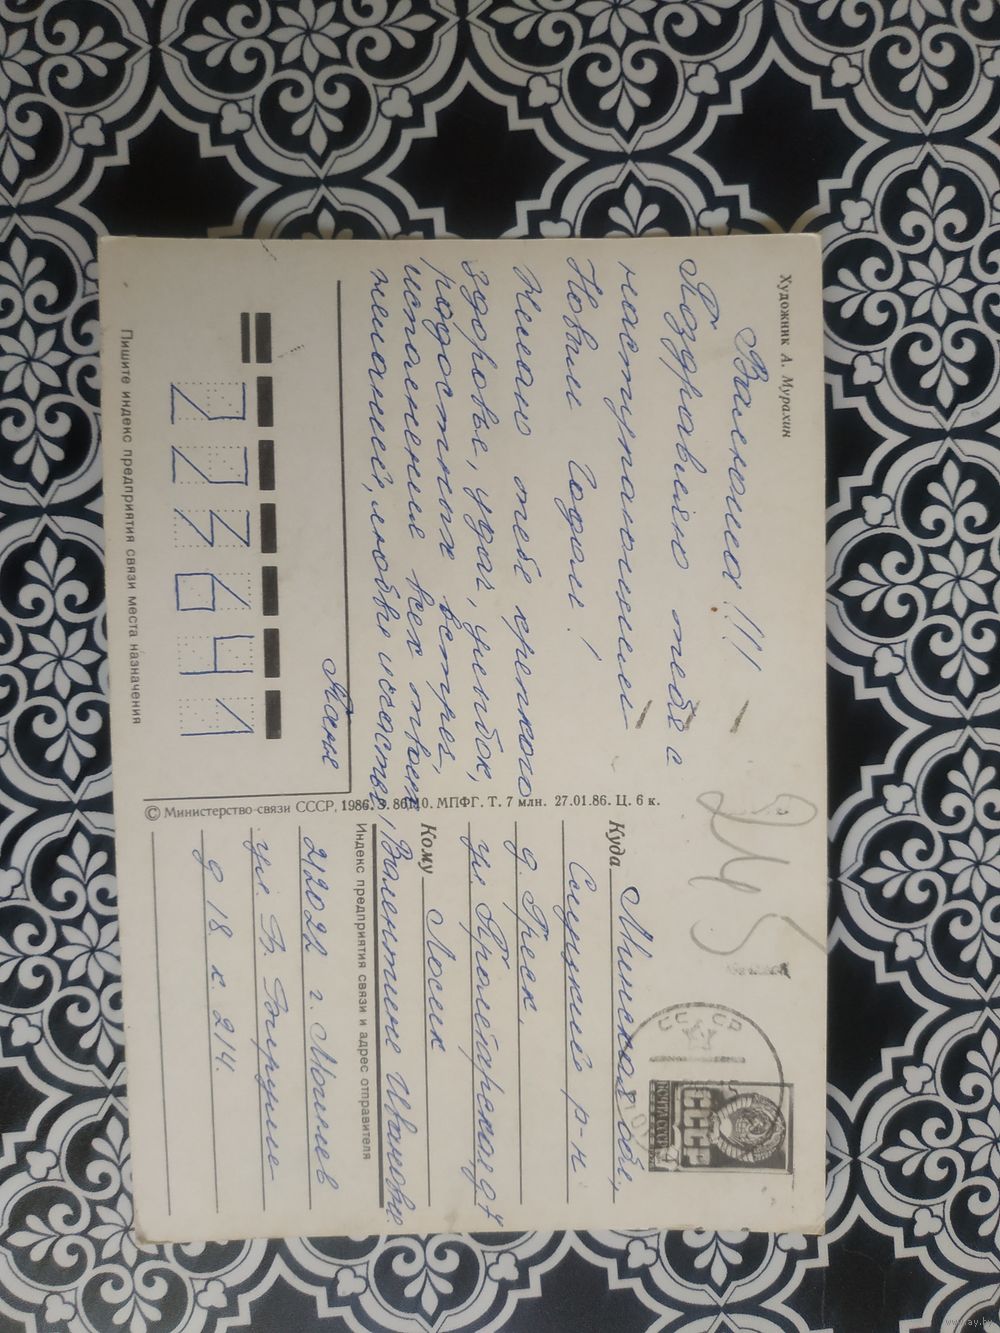 Художник А. Мурахин
Валюша!!!
Поздравляю тебя с
наступающим
Новым Годом!
Желаю тебе крепкого
здоровья, удач, улыбок,
радостных встреч,
исполнения всех твоих
желаний, любви и счастья,
Таня
223641
Пишите индекс предприятия связи места назначения
© Министерство связи СССР, 1986. З. 86/10. МПФГ. Т. 7 млн. 27.01.86. Ц. 6 к.
245
СССР
ПОЧТА СССР
СССР
Куда Минская обл.,
Слуцкий р-н
д. Греск,
ул. Пролетарская, д 7
Кому Лосик
Валентине Ивановне
Индекс предприятия связи и адрес отправителя
212022 г. Могилев
ул. Б. Бирули
д 18 к. 214.
www.ay.by